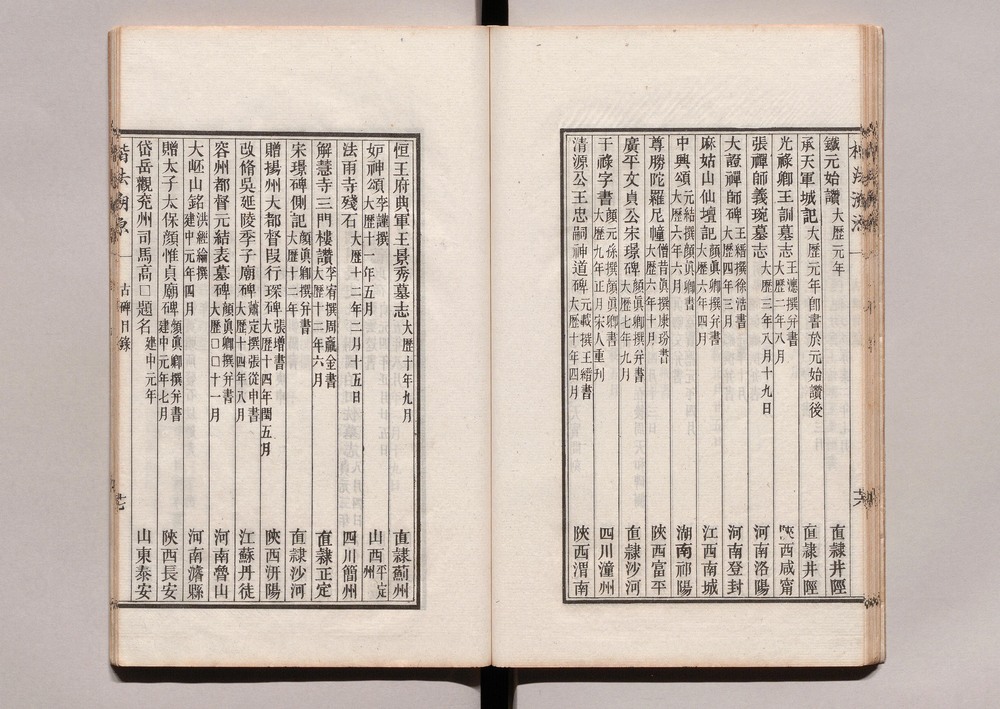 鐵元始讚 大歷元年 直隸井陘
承天軍城記 大歷元年卽書於元始讚後 直隸井陘
光祿卿王訓墓志 王德撰幷書 大歷二年八月 陝西咸甯
張禪師義琬墓志 大歷三年八月十九日 河南洛陽
大證禪師碑 王縉撰徐浩書 大歷四年三月 河南登封
麻姑山仙壇記 顏眞卿撰幷書 大歷六年四月 江西南城
中興頌 元結撰顏眞卿書 大歷六年六月 湖南祁陽
尊勝陀羅尼幢 僧昔眞撰康玢書 大歷六年十月 陝西富平
廣平文貞公宋璟碑 顏眞卿撰幷書 大歷七年九月 直隸沙河
干祿字書 顏元孫撰顏眞卿書 大歷九年正月宋人重刋 四川潼州
清源公王忠嗣神道碑 元載撰王縉書 大歷十年四月 陝西渭南
恒王府典軍王景秀墓志 大歷十年九月 直隸薊州
妒神頌 李諲撰 大歷十一年五月 山西平定州
法雨寺殘石 大歷十二年二月十五日 四川簡州
解慧寺三門樓讚 李宥撰周瀛金書 大歷十二年六月 直隸正定
宋璟碑側記 顏眞卿撰幷書 大歷十二年 直隸沙河
贈揚州大都督叚行琛碑 張增書 大歷十四年閏五月 陝西汧陽
改修吳延陵季子廟碑 蕭定撰張從申書 大歷十四年八月 江蘇丹徒
容州都督元結表墓碑 顏眞卿撰幷書 大歷□□十一月 河南魯山
大岯山銘 洪經綸撰 建中元年四月 河南濬縣
贈太子太保顏惟貞廟碑 顏眞卿撰幷書 建中元年七月 陝西長安
岱岳觀兗州司馬高□題名 建中元年 山東泰安
楷法溯源 一 古碑目錄 七